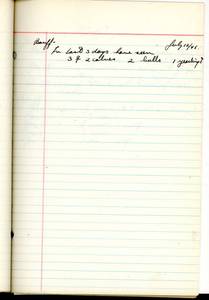 Banff. July 10/45
In last 3 days have seen
3 ♀ 2 calves 2 bulls 1 yearling